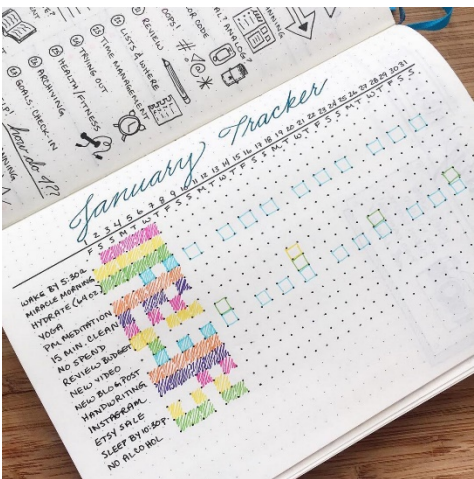 COLOR CODE
OOPS!
REVIEW
LISTS & WHERE
TIME MANAGEMENT
TRYING OUT
HEALTH/FITNESS
ARCHIVING
GOALS: CHECK IN
how do I??
January Tracker
1 2 3 4 5 6 7 8 9 10 11 12 13 14 15 16 17 18 19 20 21 22 23 24 25 26 27 28 29 30 31
F S S M T W T F S S M T W T F S S M T W T F S S M T W T F S S
WAKE BY 5:30A
MIRACLE MORNING
HYDRATE (64 OZ)
YOGA
PM MEDITATION
15 MIN. CLEAN
NO SPEND
REVIEW BUDGET
NEW VIDEO
NEW BLOG POST
HANDWRITING
INSTAGRAM
ETSY SALE
SLEEP BY 10:30P
NO ALCOHOL